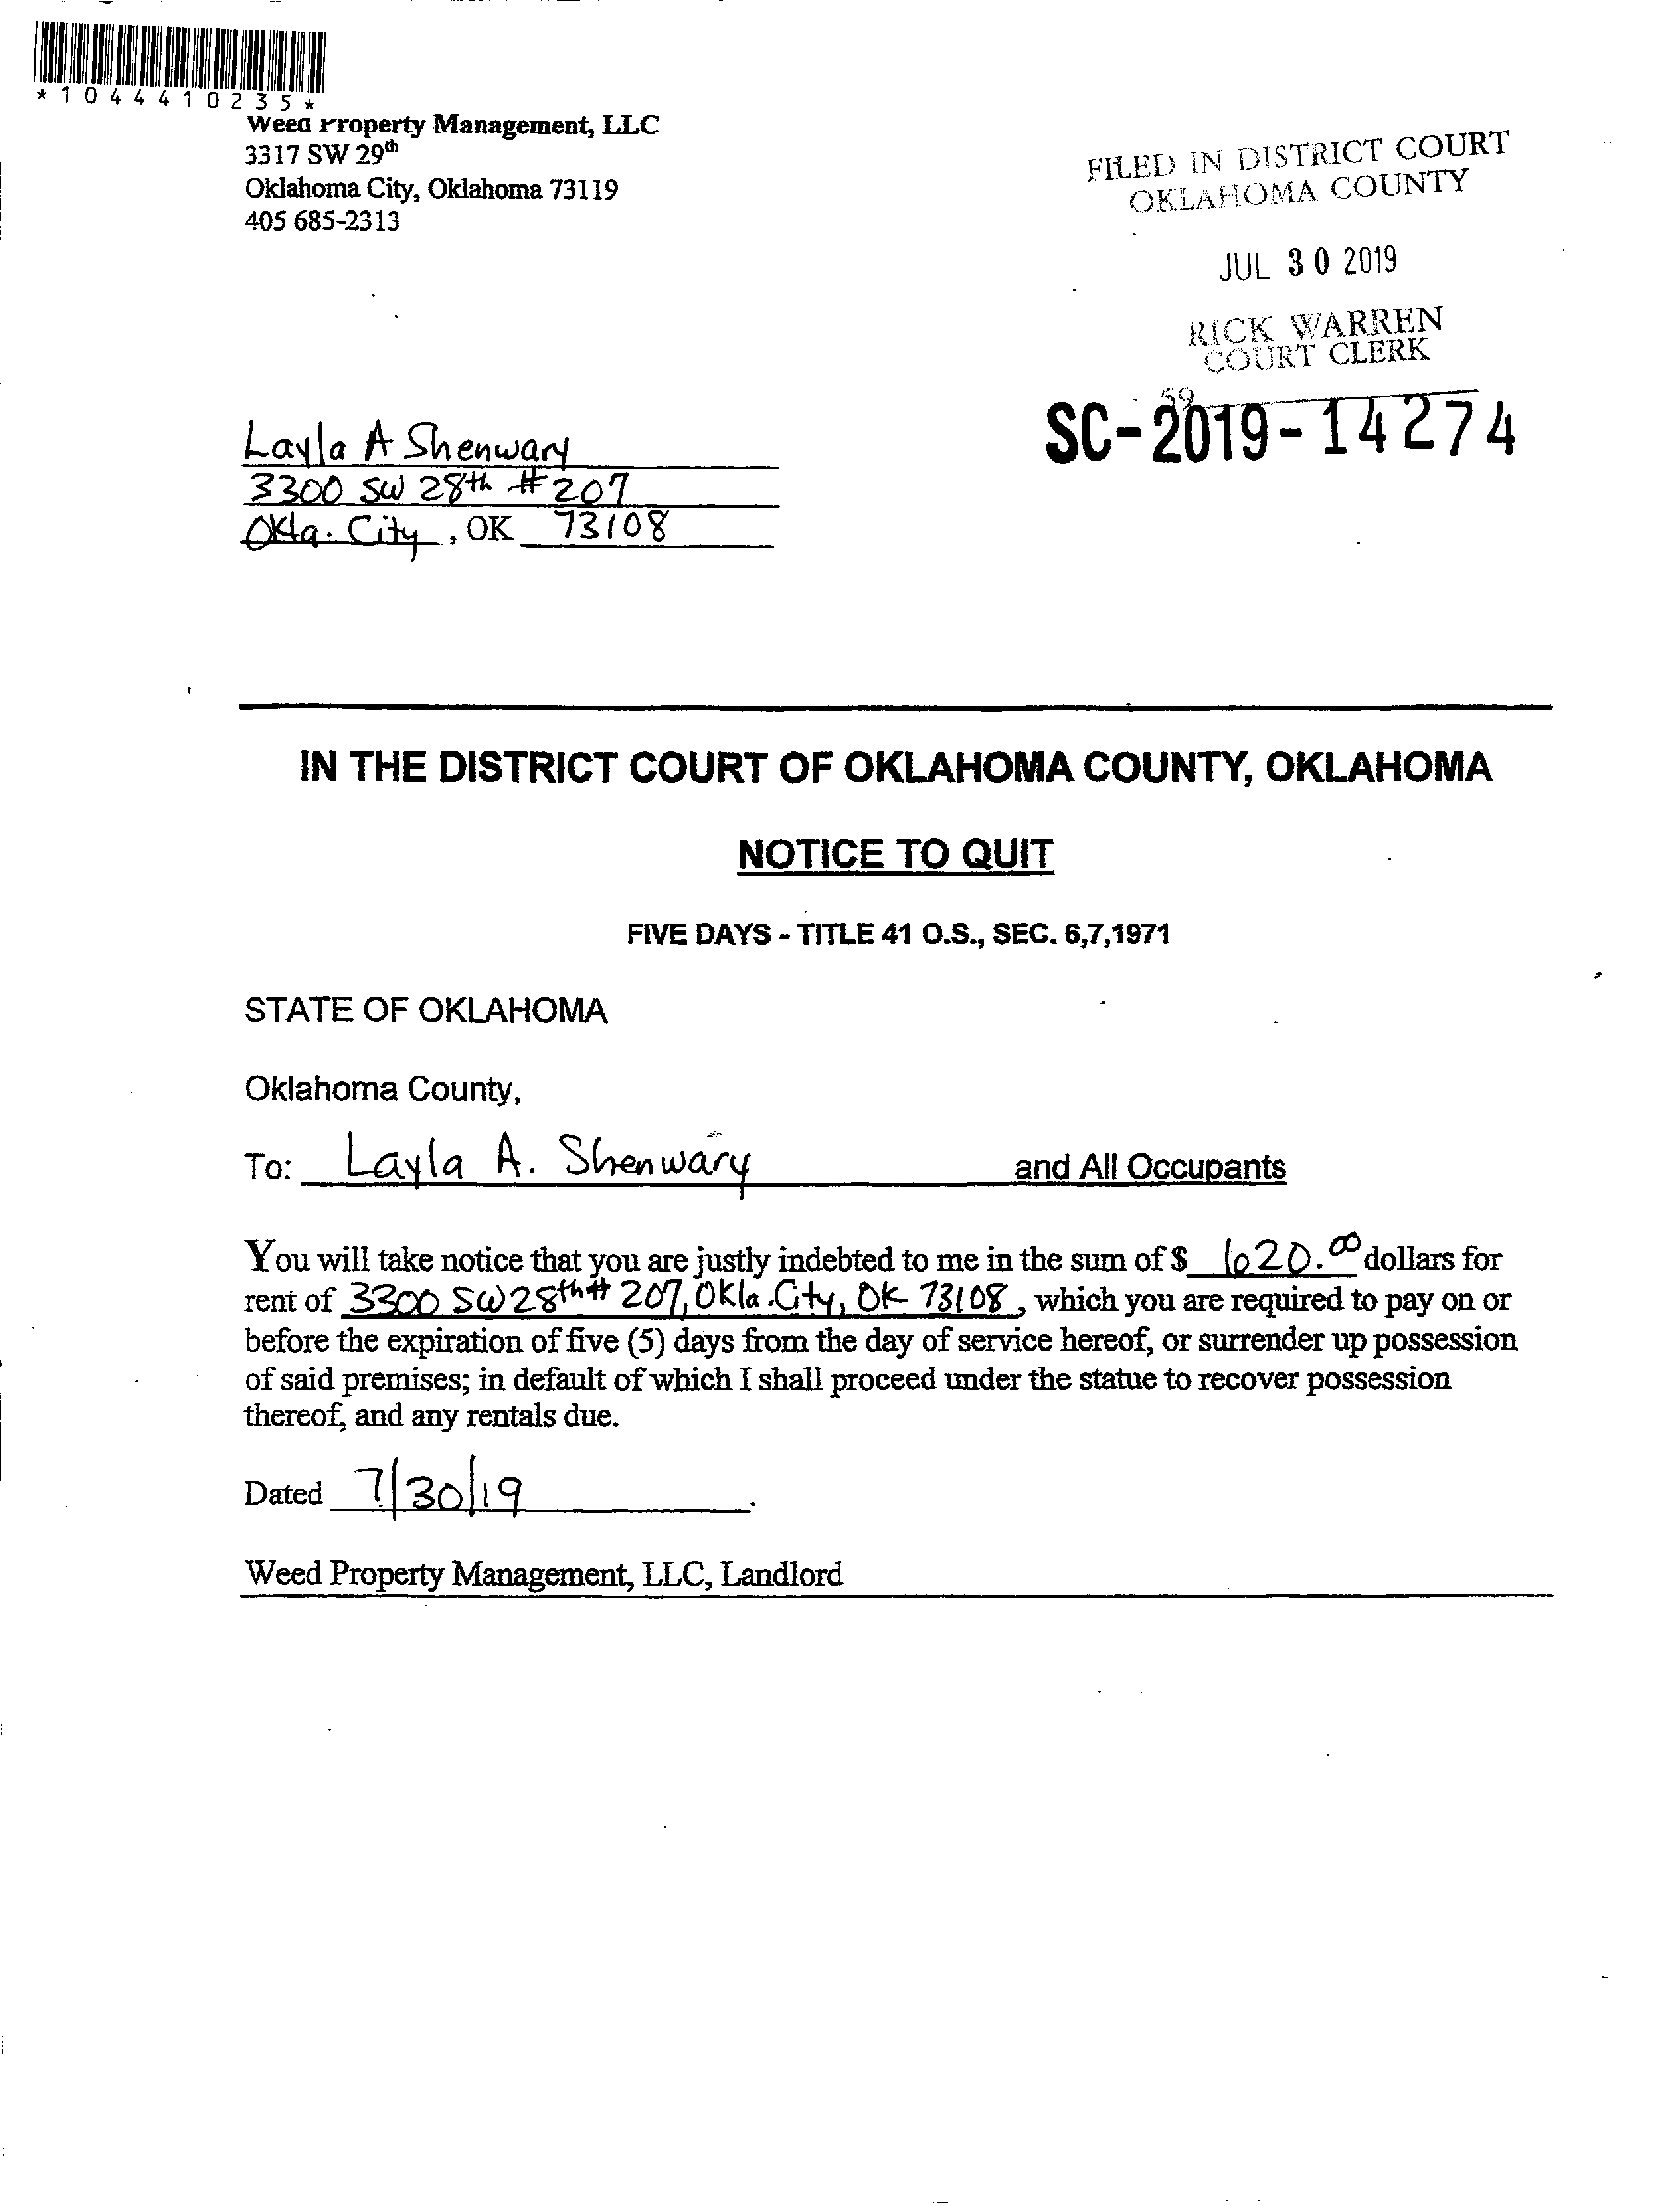 *1044410235*
Weed Property Management, LLC
3317 SW 29th
Oklahoma City, Oklahoma 73119
405 685-2313
FILED IN DISTRICT COURT
OKLAHOMA COUNTY
JUL 30 2019
RICK WARREN
COURT CLERK
59
SC-2019-14274
Layla A Shenwary
3300 SW 28th #207
Okla. City, OK 73108
IN THE DISTRICT COURT OF OKLAHOMA COUNTY, OKLAHOMA
NOTICE TO QUIT
FIVE DAYS - TITLE 41 O.S., SEC. 6,7,1971
STATE OF OKLAHOMA
Oklahoma County,
To: Layla A. Shenwary and All Occupants
You will take notice that you are justly indebted to me in the sum of $ 620.00 dollars for
rent of 3300 SW 28th # 207, Okla. City, OK 73108, which you are required to pay on or
before the expiration of five (5) days from the day of service hereof, or surrender up possession
of said premises; in default of which I shall proceed under the statue to recover possession
thereof, and any rentals due.
Dated 7/30/19.
Weed Property Management, LLC, Landlord